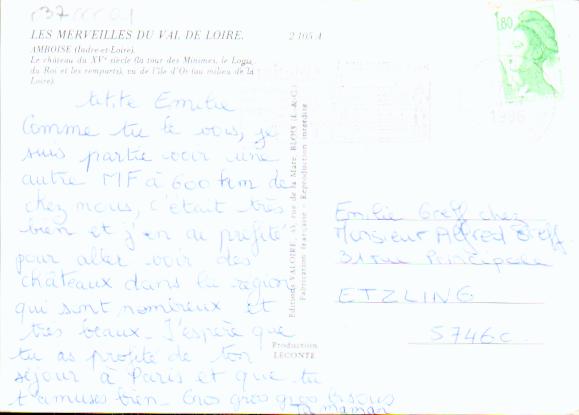 LES MERVEILLES DU VAL DE LOIRE.
2 105 A
AMBOISE (Indre-et-Loire).
Le château du XVe siècle (la tour des Minimes, le Logis
du Roi et les remparts), vu de l'île d'Or (au milieu de la
Loire).
Emilie
Comme tu le vois, je
suis partie voir une
autre MF à 600 km de
chez nous, c'était très
bien et j'en ai profité
pour aller voir des
châteaux dans la région
qui sont nombreux et
très beaux. J'espère que
tu as profité de ton
séjour à Paris et que tu
t'amuses bien. Gros gros gros bisous
Ta maman
Editions VALOIRE, rue de la Mare, BLOIS (L.-&-C.)
Fabrication française - Reproduction interdite
Production
LECONTE
1,80
1986
Emilie Greff chez
Monsieur Alfred Greff
31 rue Principale
ETZLING
57460